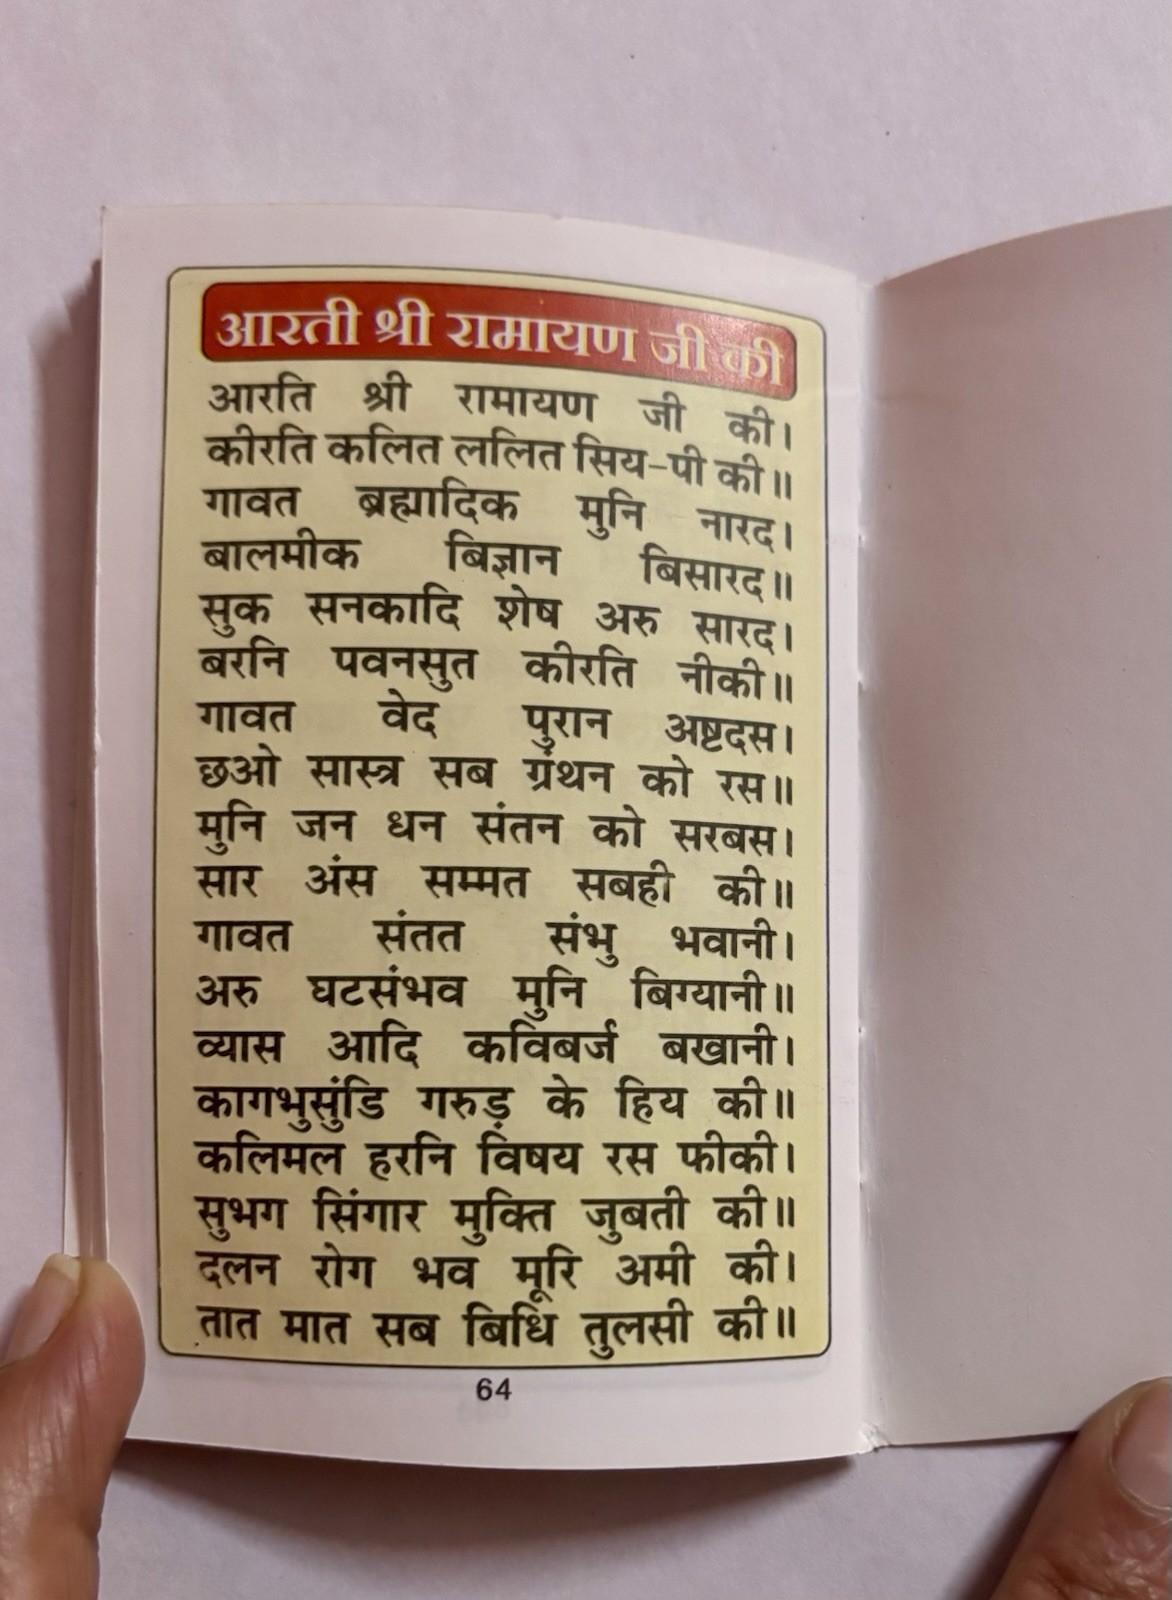 आरती श्री रामायण जी की
आरति श्री रामायण जी की।
कीरति कलित ललित सिय-पी की॥
गावत ब्रह्मादिक मुनि नारद।
बालमीक बिज्ञान बिसारद॥
सुक सनकादि शेष अरु सारद।
बरनि पवनसुत कीरति नीकी॥
गावत वेद पुरान अष्टदस।
छओ सास्त्र सब ग्रंथन को रस॥
मुनि जन धन संतन को सरबस।
सार अंस सम्मत सबही की॥
गावत संतत संभु भवानी।
अरु घटसंभव मुनि बिग्यानी॥
व्यास आदि कविबर्ज बखानी।
कागभुसुंडि गरुड़ के हिय की॥
कलिमल हरनि विषय रस फीकी।
सुभग सिंगार मुक्ति जुबती की॥
दलन रोग भव मूरि अमी की।
तात मात सब बिधि तुलसी की॥
64